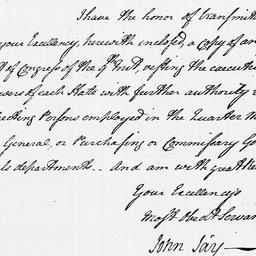 I have the honor of transmit
your Excellency, herewith enclosed, a Copy of an
of Congress of the 9th Inst, vesting the executi
wers of each State with further authority
ecting Persons employed in the Quarter M
General, or Purchasing or Commissary G
ls departments.. And am with great
Your Excellency's
most Obedt Servan
John Jay